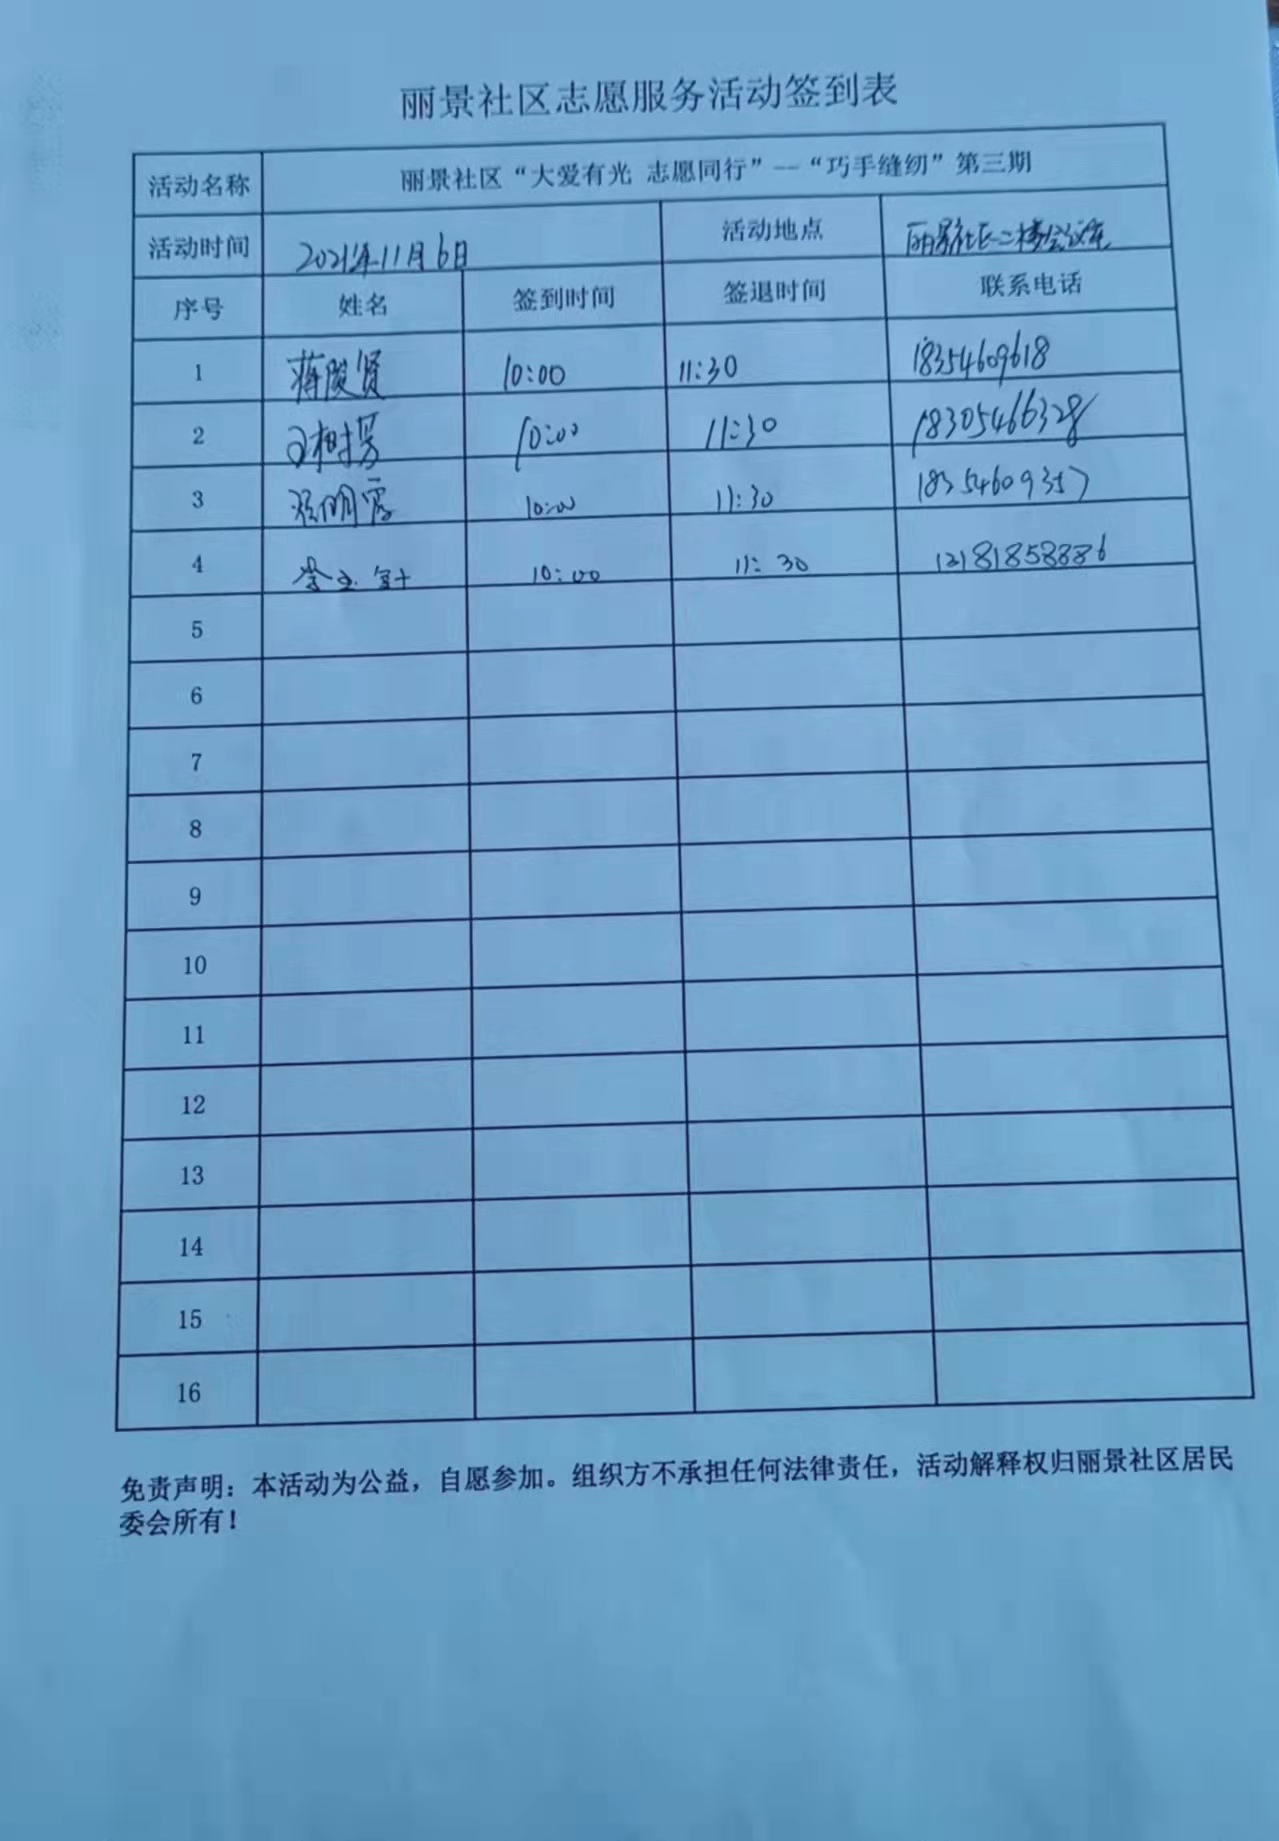 丽景社区志愿服务活动签到表
活动名称 丽景社区“大爱有光 志愿同行”—“巧手缝纫”第三期
活动时间 2021年11月6日 活动地点 丽景社区二楼会议室
序号 姓名 签到时间 签退时间 联系电话
1 蒋俊贤 10:00 11:30 18354609618
2 10:00 11:30 18305466328
3 张明霞 10:00 11:30 18354609357
4 10:00 11:30
5
6
7
8
9
10
11
12
13
14
15
16
免责声明：本活动为公益，自愿参加。组织方不承担任何法律责任，活动解释权归丽景社区居民
委会所有！